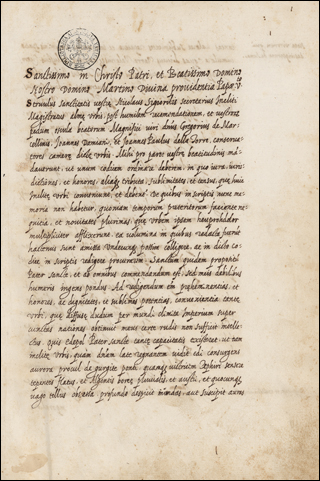 Sanctissimo in Christo Patri, et Beatissimo Domino
Nostro Domino Martino Divina providentia Papæ V.to
Servulus sanctitatis vestræ Nicolaus Signorilis secretarius Incliti
Magistratus almæ urbis, post humilem recomendationem, et vestrorum
pedum oscula beatorum. Magnifici viri domini Gregorius de Mar
cellinis, Joannes Damiani, et Joannes Paulus della Torre, conserva
tores cameræ dictæ urbis. Mihi pro parte vestræ beatitudinis man
daverunt, ut unum codicem ordinare deberem, in quo iura, iuris
dictiones, et honores, aliaque tributa, sublimitates, et census, quæ huic
Inclitæ urbi conveniunt, et debent. De quibus in scriptis mene me
moria non habetur, quoniam temporum præteritorum
et novitates plurimas, quæ urbem ipsam
multipliciter afflixerunt, ea volumina in quibus redacta fuerit
hactenus sunt amissa undecunque potui colligere, et in dicto co
dice in scriptis redigere procurassem. Sanctum quidem propositum
Pater sancte, et ab omnibus commendandum est. Sed meis debilibus
humeris ingens pondus. Ad redigendum enim præheminentias, et
honores, ac dignitates, et sublimes potentias, convenientia tantæ
urbi, quæ diffuse dudum per mundi climata Imperium super
cunctas nationes optinuit meus certe rudis non sufficit intelle
ctus. Quis edepol Pater sancte tantæ capacitatis existeret, ut tam
inclitæ urbis, quam dnam late regnantem vidit edi consurgens
aurora procul de gurgite ponti, quamque ultricem Zephiri sentit
tepentis flatus, et Alpinus boreæ pluvialis, et austri, et quocunque
vago tellus obscura profundo despicit mundos, aut suscipit auras